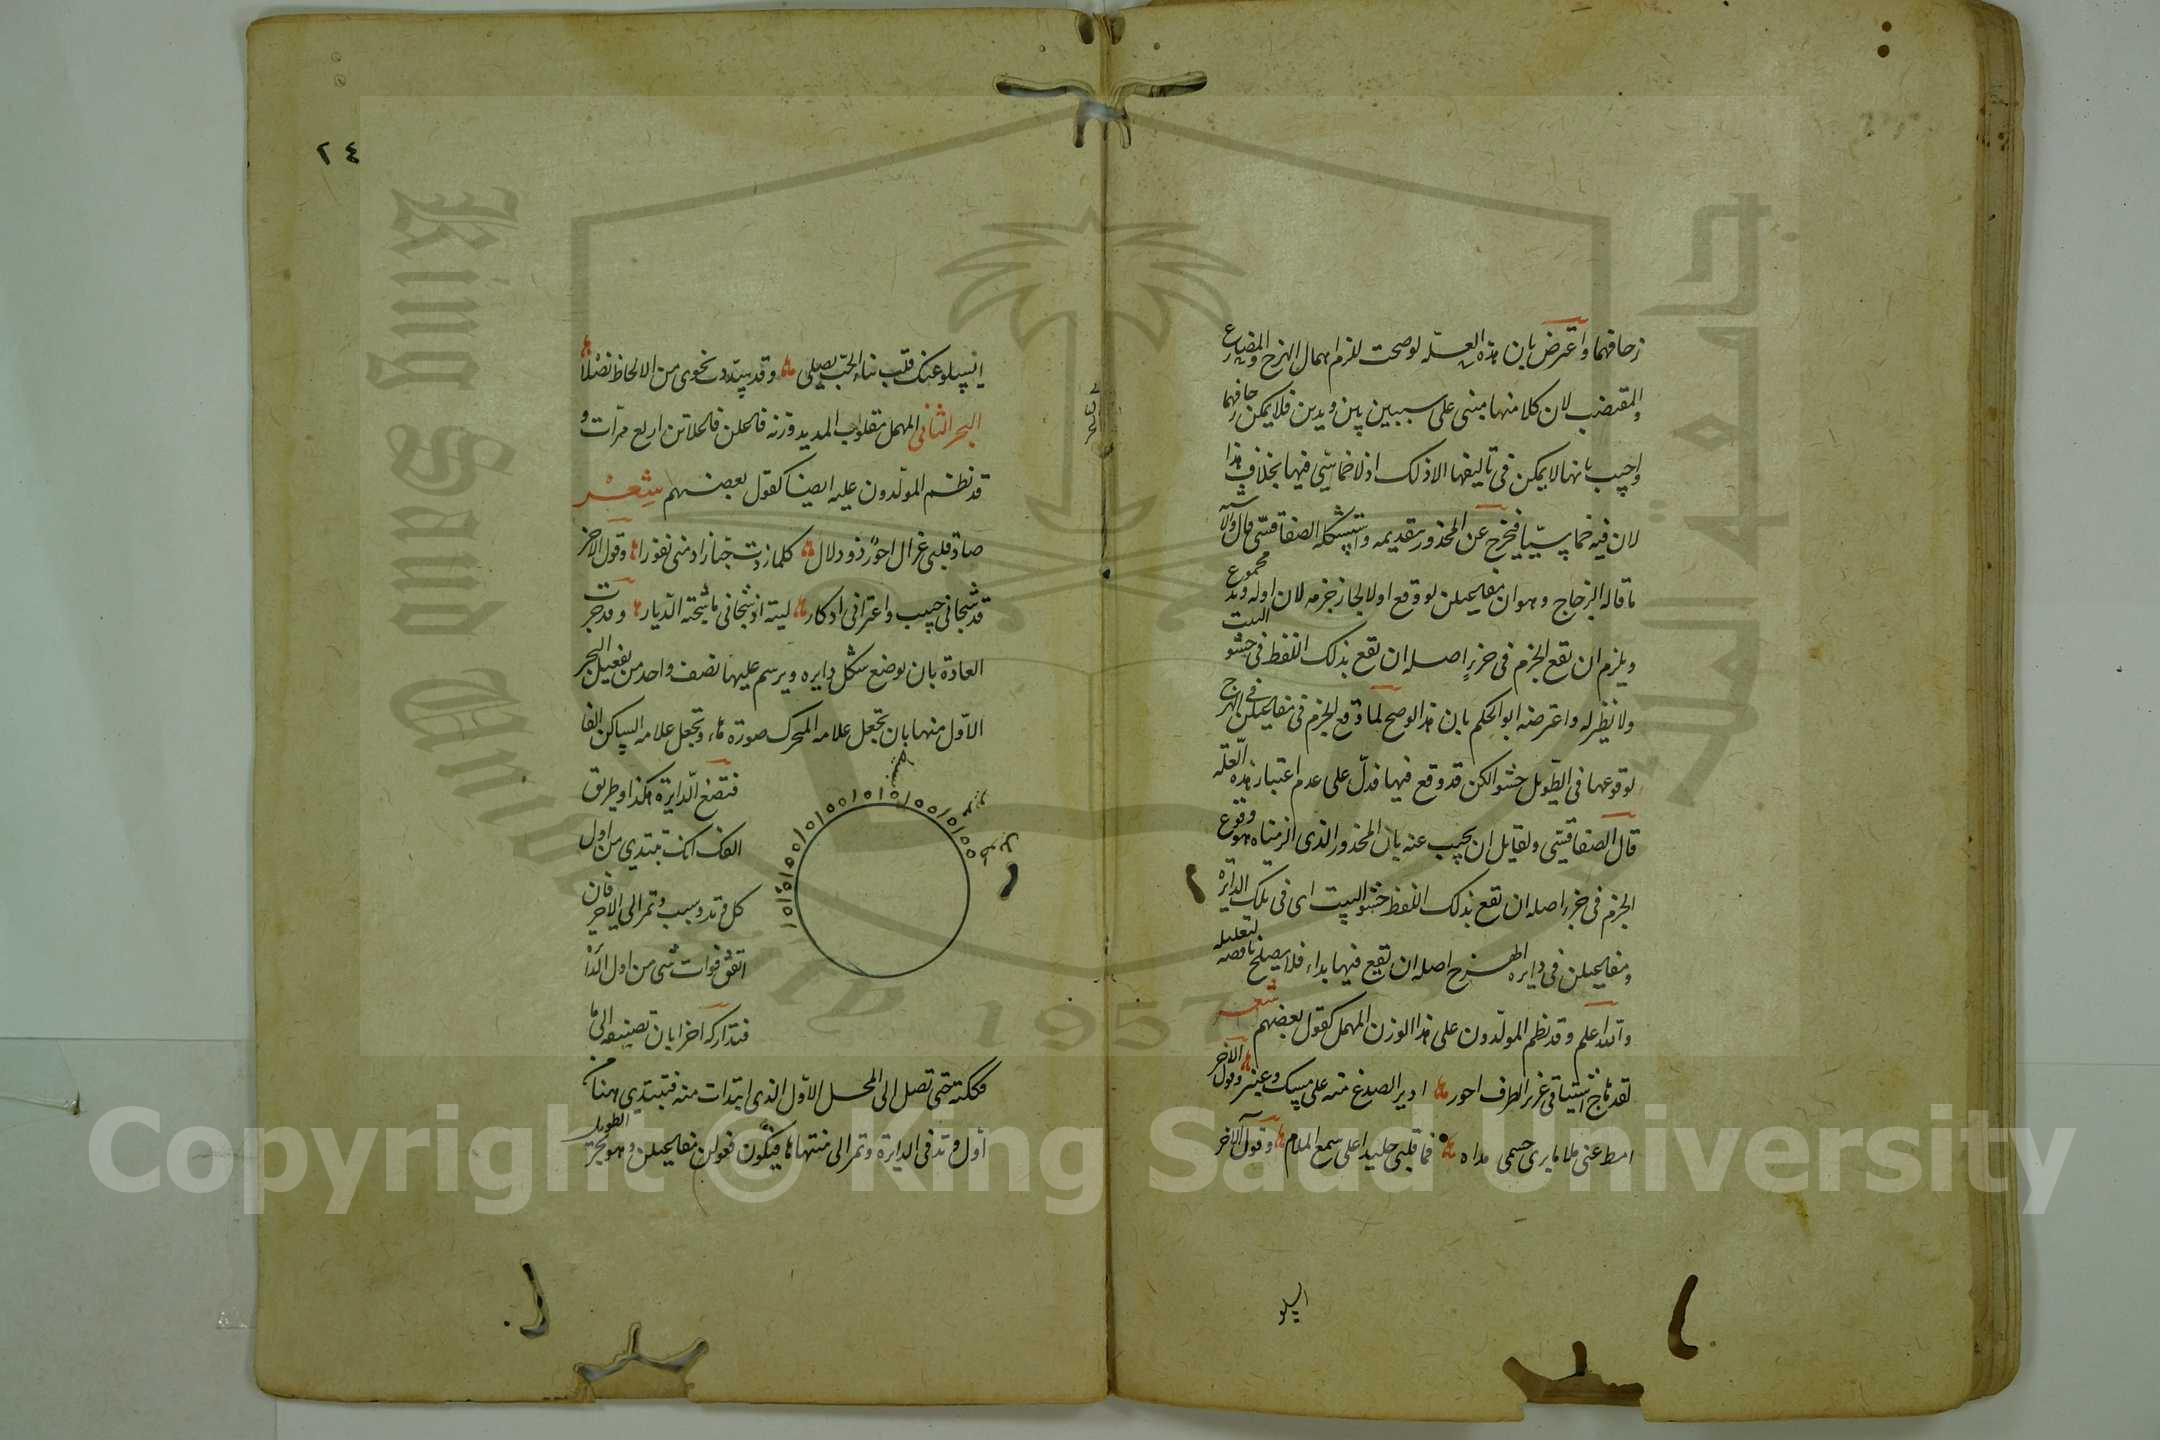 زحافهما واعترض بان هذه العلّة لو صحت للزم اهمال الهزج والمضارع
والمقتضب لان كلا منها مبنى على سببين بين وتدين فلا يمكن زحافهما
واجيب بانها لا يمكن فى تاليفها الا ذلك اذ لا خماسّى فيها بخلاف هذا
لان فيه خماسيّا فيخرج عن المحذور بتقديمه واستشكله الصفاقسّى قال والاشبه
ما قاله الزجاج وهو ان مفاعيلن لو وقع اولا لجاز خرمه لان اوله وتد مجموع
ويلزم ان يقع الخرم فى جزءٍ اصله ان يقع بذلك اللفظ فى حشو البيت
ولا نظير له واعترضه ابو الحكم بان هذا لو صح لما وقع الخرم فى مفاعيلن فى الهزج
لوقوعها فى الطّويل حشوا لكن قد وقع فيها فدلّ على عدم اعتبار هذه العّلة
قال الصفاقسّى ولقايل ان يجيب عنه بان المحذور الذى الزمناه هو وقوع
الخرم فى جزء اصله ان يقع بذلك اللفظ حشو البيت اى فى تلك الدايرة
ومفاعيلن فى دايرة الهزج اصله ان يقع فيها بداء فلا يصلح ناقضه لتعليله
والله اعلم وقد نظم المولّدون على هذا الوزن المهمل كقول بعضهم شعر
لقد هاج اشتياقى غرير الطرف احور ادير الصدغ منه على مسك وعنبر وقول الاخر
امط عنى ملاما برى جسمى مداه فما قلبى جليدا على سمع الملام وقول الآخر
ايسلو
٢٤
ايسلو عنك قلب بنار الحبّ يصلى وقد سدّدت نحوى من الالحاظ نصلا
البحر الثانى المهمل مقلوب المديد وزنه فاعلن فاعلاتن اربع مرّات و
قد نظم المولّدون عليه ايضا كقول بعضهم شِعْر
صاد قلبى غزال احوَر ذو دلال كلما زدت حبّا زاد منى نفورا وقول الآخر
قد شجانى حبيب واعترانى ادكار ليته اذ شجانى ما شجته الدّيار وقد جرت
العادة بان يوضع شكل دايره ويرسم عليها نصف واحد من تفعيل البحر
الاوّل منها بان تجعل علامه المتحرك صورة هاء وتجعل علامه الساكن الفا
فتصنع الدّايرة هكذا وطريق
الفك انك تبتدي من اول
كل وتد وسبب وتمر الى الاخر فان
اتفق فوات شى من اول الدا
فتداركه اخرا بان تضيفه الى ما
فككته حتى تصل الى المحل الاوّل الذى ابتدات منه فتبتدى هنا من
اول وتد فى الدايرة وتمر الى منتهاها فيكُون فعولن مفاعيلن وهو بحر الطويل
طويل
مديد